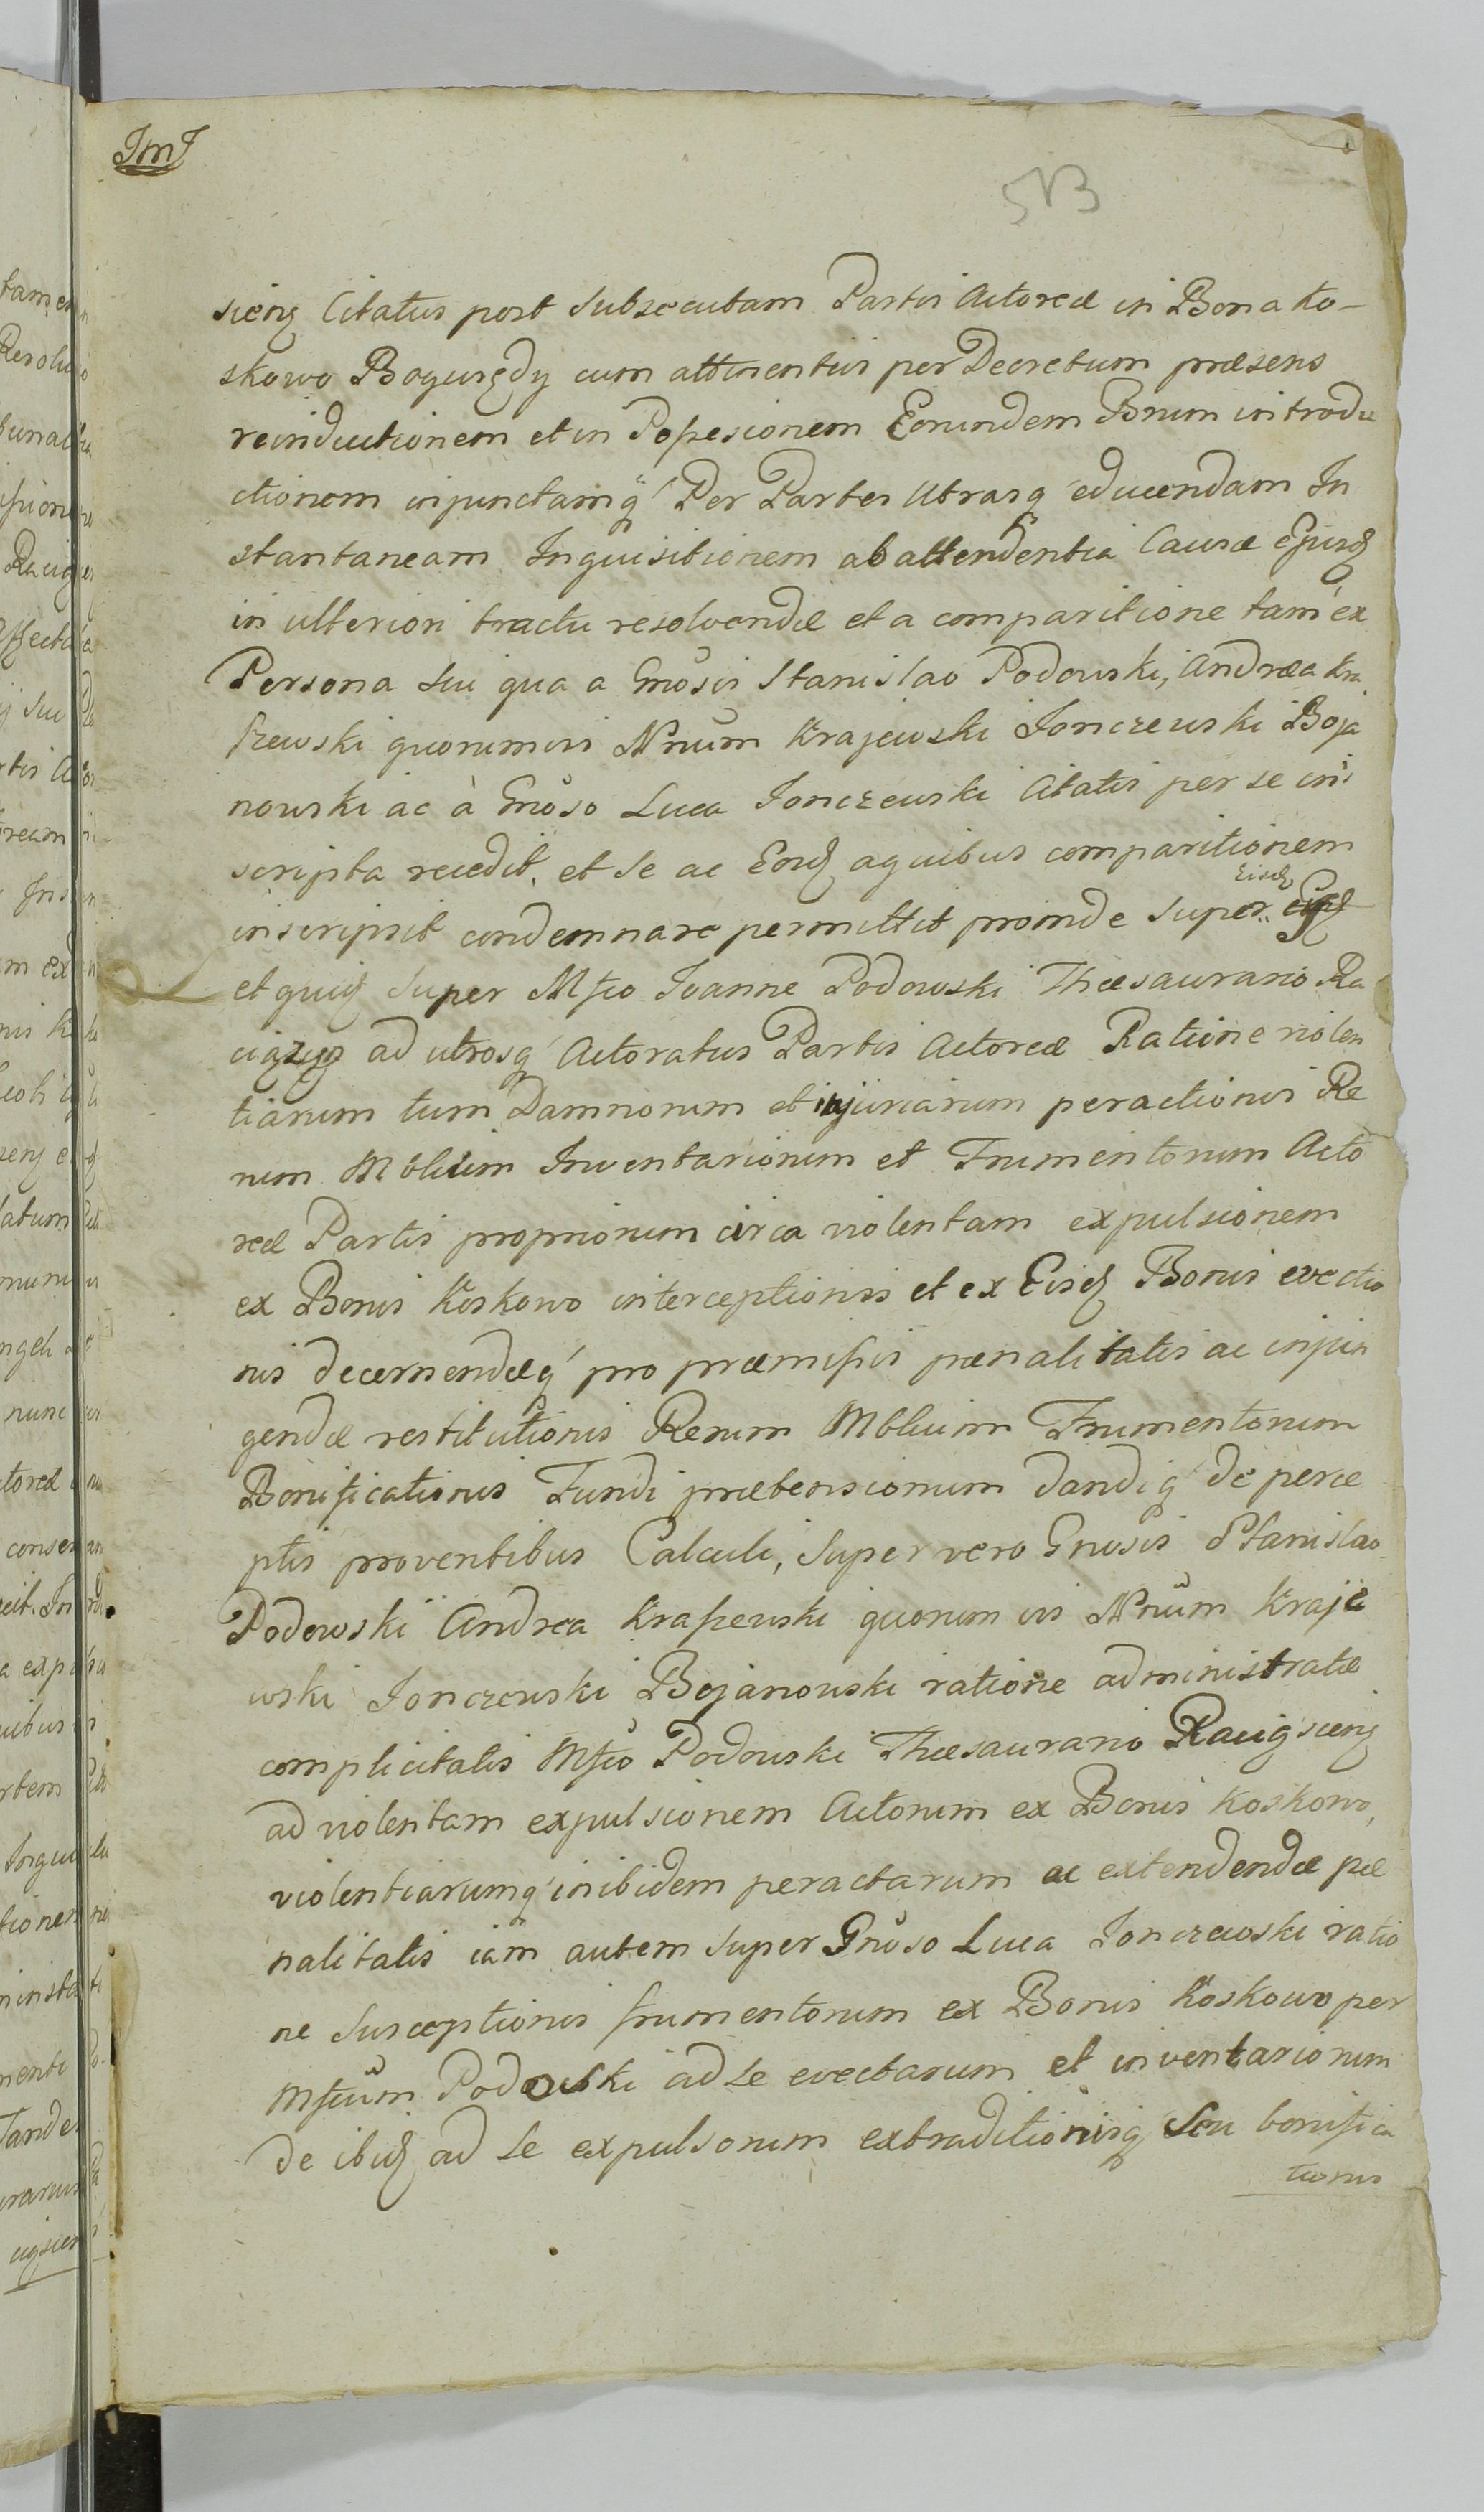 JmJ
513
sieng Citatus post Subsecutam Partis Actoreæ in Bona Ko-
skowo Bogurędy cum attinentiis per Decretum præsens
reinductionem et in Possesionem Eorundem Bnrum introdu
ctionem injunctamq Per Partes Utrasq educendam In
stantaneam Inquisitionem ab attendentia Causæ Ejusd
in ulteriori tractu resolvendæ et a comparitione tam ex
Persona sui qua a Gnosis Stanislao Podowski, Andrea Kra
szewski quorumvis Nnum Krajewski Jonczewski Boja
nowski ac à Gnoso Luca Jonczewski Citatis per se in
scripta recedit, et se ac Eosd a quibus comparitionem
Eisd
inscripsit condemnare permittit proinde Super
et quid Super Mfco Joanne Podowski Thæsaurario Ra
ad utrosq Actoratus Partis Actoreæ Ratione violen
tiarum tum Damnorum et injuriarum peractionis Re
rum Mblium Inventariorum et Frumentorum Acto
reæ Partis propriorum circa violentam expulsionem
ex Bonis Koskowo interceptionis et ex Eisd Bonis evectio
nis decernendæq pro præmissis pænalitatis ac injun
gendæ restitutionis Rerum Mblium Frumentorum
Bonificationis Fundi prætensionum dandiq de perce
ptis proventibus Calculi, Super vero Gnosis Stanislao
Podowski Andrea Kraszewski quorumvis Nnum Kraje
wski Jonczewski Bojanowski ratione administratæ
complicitatis Mfco Podowski Thæsaurario Racigsieng
ad violentam expulsionem Actorum ex Bonis Koskowo,
violentiarumq inibidem peractarum ac extendendæ pæ
nalitatis iam autem Super Gnoso Luca Jonczewski ratio
ne Susceptionis frumentorum ex Bonis Koskowo per
Mfcum Podowski ad se evectarum et inventariorum
de ibid ad se expulsorum extraditionisq Seu bonifica
tionis